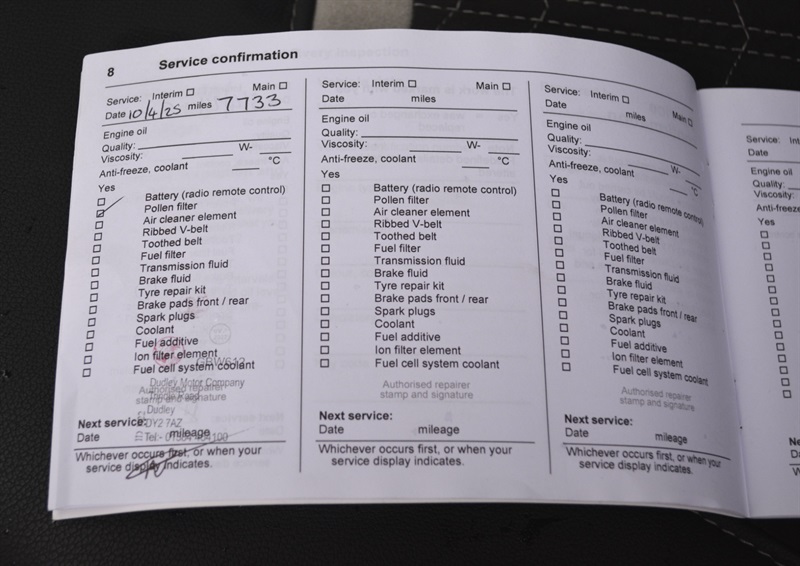 8 Service confirmation
Service: Interim Main
Date 10/4/25 miles 7733
Engine oil
Quality:
Viscosity: W-
Anti-freeze, coolant °C
Yes
Battery (radio remote control)
Pollen filter
Air cleaner element
Ribbed V-belt
Toothed belt
Fuel filter
Transmission fluid
Brake fluid
Tyre repair kit
Brake pads front / rear
Spark plugs
Coolant
Fuel additive
Ion filter element
Fuel cell system coolant
Dudley Motor Company
Authorised repairer
stamp and signature
Dudley
Next service:
DY2 7AZ
Date mileage
Tel:-
Whichever occurs first, or when your
service display indicates.
Service: Interim Main
Date miles
Engine oil
Quality:
Viscosity: W-
Anti-freeze, coolant °C
Yes
Battery (radio remote control)
Pollen filter
Air cleaner element
Ribbed V-belt
Toothed belt
Fuel filter
Transmission fluid
Brake fluid
Tyre repair kit
Brake pads front / rear
Spark plugs
Coolant
Fuel additive
Ion filter element
Fuel cell system coolant
Authorised repairer
stamp and signature
Next service:
Date mileage
Whichever occurs first, or when your
service display indicates.
Service: Interim Main
Date miles
Engine oil
Quality:
Viscosity: W-
Anti-freeze, coolant °C
Yes
Battery (radio remote control)
Pollen filter
Air cleaner element
Ribbed V-belt
Toothed belt
Fuel filter
Transmission fluid
Brake fluid
Tyre repair kit
Brake pads front / rear
Spark plugs
Coolant
Fuel additive
Ion filter element
Fuel cell system coolant
Authorised repairer
stamp and signature
Next service:
Date mileage
Whichever occurs first, or when your
service display indicates.
Service: Int
Date
Engine oil
Quality:
Viscosity:
Anti-freeze
Yes